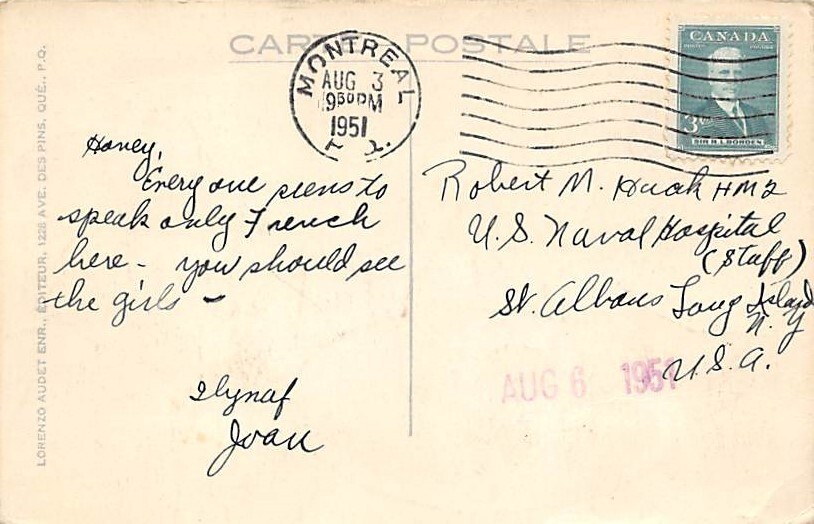 CARTE POSTALE
MONTREAL
AUG 3
9 30 PM
1951
P. Q.
CANADA
POSTES POSTAGE
3
SIR R.L. BORDEN
LORENZO AUDET ENR., ÉDITEUR, 1228 AVE. DES PINS, QUÉ., P.Q.
Honey,
Every one seems to
speak only French
here - you should see
the girls -
Ilynaf
Joan
Robert M. HM2
U.S. Naval Hospital
(Staff)
St. Albans Long Island
N.Y
U.S.A.
AUG 6 1951